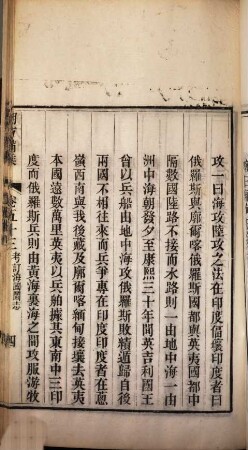 攻一曰海攻陸攻之法在印度偪壤印度者曰
俄羅斯與廓爾喀俄羅斯國都與英夷國都中
隔數國陸路不接而水路則一由地中海一由
洲中海朝發夕至康熙三十年間英吉利國王
曾以兵船由地中海攻俄羅斯敗績遁歸自後
兩國不相往來而兵爭專在印度印度者在蔥
嶺西南與我後藏及廓爾喀緬甸接壤去英夷
本國遠數萬里英夷以兵舶據其東南中三印
度而俄羅斯兵則由黃海裏海之間攻服游牧
卷五十三 考訂海國圖志 四